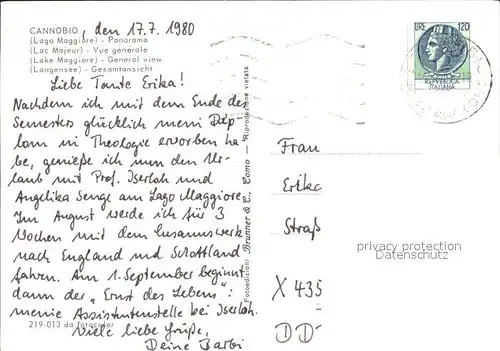 CANNOBIO, den 17.7.1980
(Lago Maggiore) - Panorama
(Lac Majeur) - Vue générale
(Lake Maggiore) - General view
(Langensee) - Gesamtansicht
Liebe Tante Erika!
Nachdem ich mit dem Ende des
Semesters glücklich mein Dip
lom in Theologie erworben ha
be, genieße ich nun den Ur-
laub mit Prof. Iserloh und
Angelika Senge am Lago Maggiore
Im August werde ich für 3
Wochen mit dem Cusanuswerk
nach England und Schottland
fahren. Am 1. September beginnt
dann der „Ernst des Lebens":
meine Assistentenstelle bei Iserloh.
Viele liebe Grüße,
Deine Barbi
219-013 da fotocolor
Fotoedizioni Brunner & C. Como - Riproduzione vietata
LIRE 120
REPVBBLICA
ITALIANA
Frau
Erika
Straß
privacy protection
Datenschutz
X 435
DD-